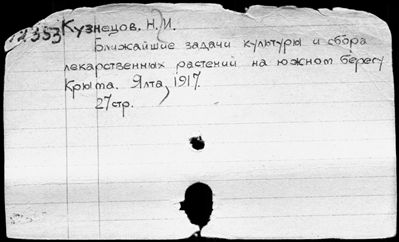 12353 Кузнецов. Н. И.
Ближайшие задачи культуры и сбора
лекарственных растений на южном берегу
Крыма. Ялта, 1917.
27стр.